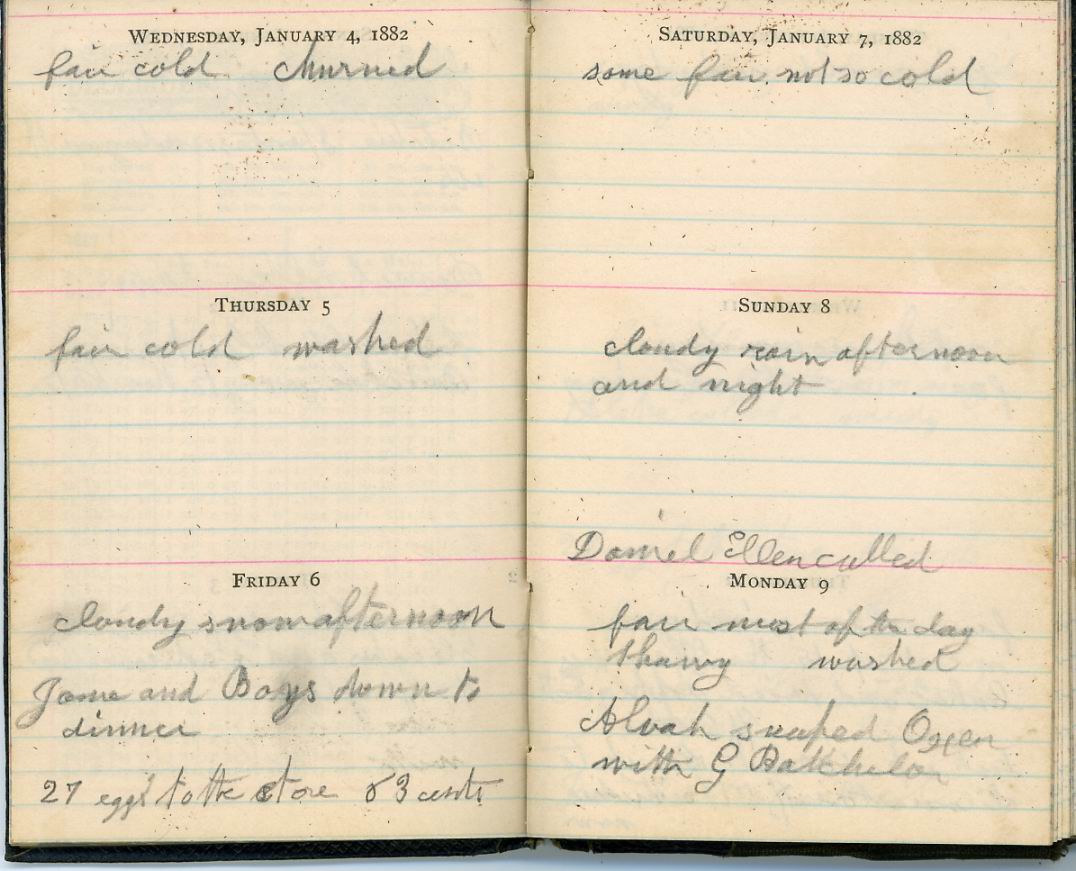 WEDNESDAY, JANUARY 4, 1882
fair cold churned
THURSDAY 5
fair cold washed
FRIDAY 6
cloudy snow afternoon
Jane and Boys down to
dinner
27 eggs to the store 63 cents
SATURDAY, JANUARY 7, 1882
some fair not so cold
SUNDAY 8
cloudy rain afternoon
and night
Daniel Ellen called
MONDAY 9
fair most of the day
thawy washed
Alvah swaped Oxen
with G Batchelor